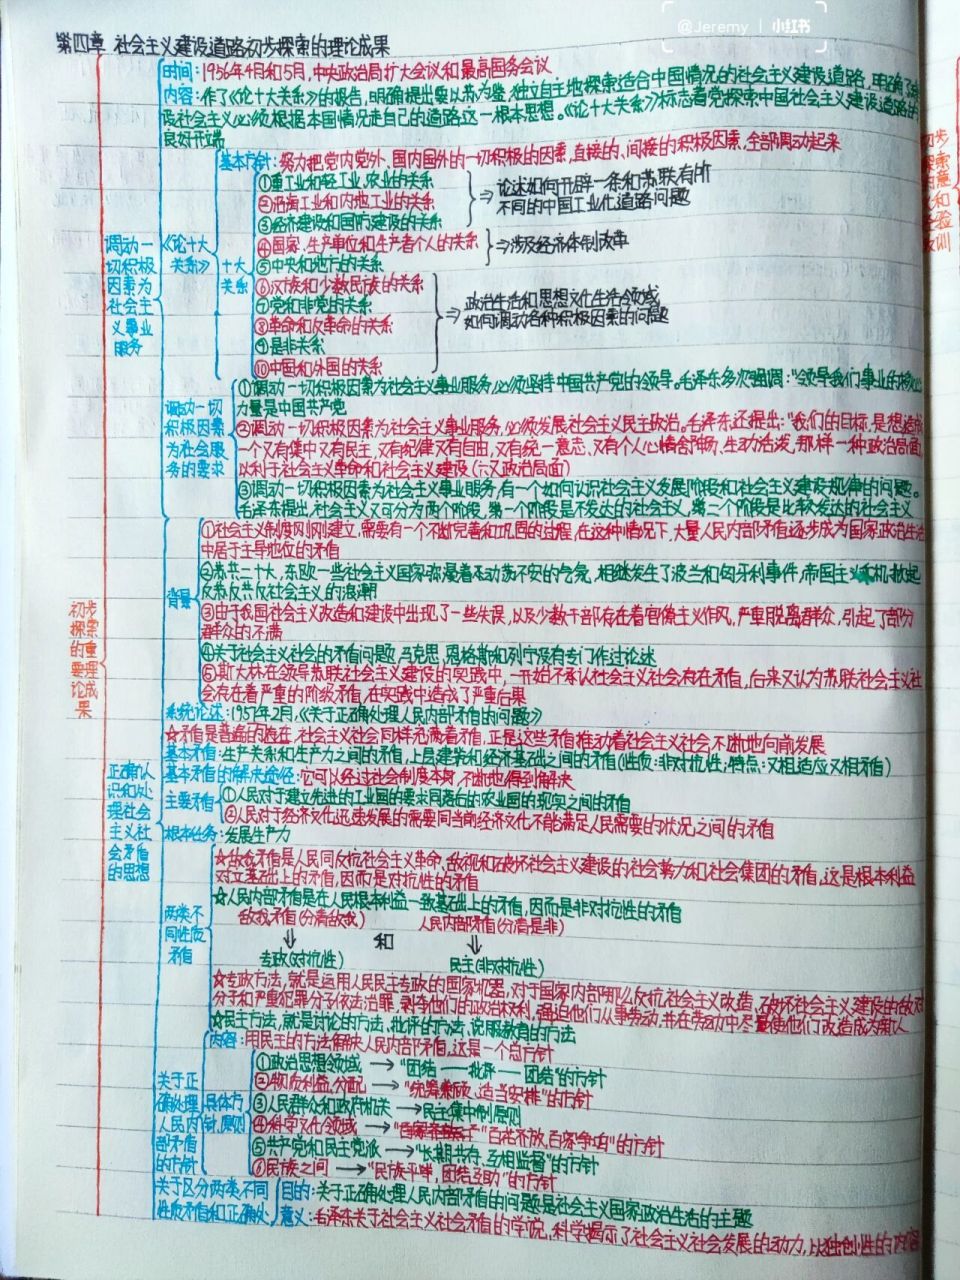 @Jeremy | 小红书
第四章 社会主义建设道路初步探索的理论成果
时间:1956年4月和5月,中央政治局扩大会议和最高国务会议
内容:作了《论十大关系》的报告,明确提出要以苏为鉴,独立自主地探索适合中国情况的社会主义建设道路,明确了
设社会主义必须根据本国情况走自己的道路这一根本思想。《论十大关系》标志着党探索中国社会主义建设道路的
良好开端
初步探索的重要理论成果
调动一切积极因素为社会主义事业服务
《论十大关系》
基本方针:努力把党内党外、国内国外的一切积极的因素,直接的、间接的积极因素,全部调动起来
十大关系
①重工业和轻工业、农业的关系
②沿海工业和内地工业的关系
③经济建设和国防建设的关系
⇒论述如何开辟一条和苏联有所
不同的中国工业化道路问题
④国家、生产单位和生产者个人的关系
⑤中央和地方的关系
⇒涉及经济体制改革
⑥汉族和少数民族的关系
⑦党和非党的关系
⑧革命和反革命的关系
⑨是非关系
⑩中国和外国的关系
⇒政治生活和思想文化生活领域
如何调动各种积极因素的问题
调动一切积极因素为社会服务的要求
①调动一切积极因素为社会主义事业服务,必须坚持中国共产党的领导。毛泽东多次强调:"领导我们事业的核心
力量是中国共产党
②调动一切积极因素为社会主义事业服务,必须发展社会主义民主政治。毛泽东还提出:"我们的目标,是想造成
一个又有集中又有民主,又有纪律又有自由,又有统一意志、又有个人心情舒畅、生动活泼,那样一种政治局面,
以利于社会主义革命和社会主义建设(六又政治局面)
③调动一切积极因素为社会主义事业服务,有一个如何认识社会主义发展阶段和社会主义建设规律的问题。
毛泽东提出,社会主义又可分为两个阶段,第一个阶段是不发达的社会主义,第二个阶段是比较发达的社会主义
正确认识和处理社会主义社会矛盾的思想
背景
①社会主义制度刚刚建立,需要有一个不断完善和巩固的过程,在这种情况下,大量人民内部矛盾逐步成为国家政治生活
中居于主导地位的矛盾
②苏共二十大,东欧一些社会主义国家弥漫着不动荡不安的气氛,相继发生了波兰和匈牙利事件,帝国主义乘机掀起
反苏反共反社会主义的浪潮
③由于我国社会主义改造和建设中出现了一些失误,以及少数干部存在着官僚主义作风,严重脱离群众,引起了部分
群众的不满
④关于社会主义社会的矛盾问题,马克思、恩格斯和列宁没有专门作过论述
⑤斯大林在领导苏联社会主义建设的实践中,一开始不承认社会主义社会存在矛盾,后来又认为苏联社会主义社
会存在着严重的阶级矛盾,在实践中造成了严重后果
系统论述:1957年2月,《关于正确处理人民内部矛盾的问题》
☆矛盾是普遍的存在,社会主义社会同样充满着矛盾,正是这些矛盾推动着社会主义社会不断地向前发展
基本矛盾:生产关系和生产力之间的矛盾,上层建筑和经济基础之间的矛盾(性质:非对抗性;特点:又相适应又相矛盾)
基本矛盾的解决途径:它可以经过社会制度本身,不断地得到解决
主要矛盾
①人民对于建立先进的工业国的要求同落后的农业国的现实之间的矛盾
②人民对于经济文化迅速发展的需要同当前经济文化不能满足人民需要的状况之间的矛盾
根本任务:发展生产力
两类不同性质矛盾
☆敌我矛盾是人民同反抗社会主义革命,敌视和破坏社会主义建设的社会势力和社会集团的矛盾,这是根本利益
对立基础上的矛盾,因而是对抗性的矛盾
☆人民内部矛盾是在人民根本利益一致基础上的矛盾,因而是非对抗性的矛盾
敌我矛盾(分清敌我) 和 人民内部矛盾(分清是非)
⇓ ⇓
专政(对抗性) 民主(非对抗性)
☆专政方法,就是运用人民民主专政的国家机器,对于国家内部那么反抗社会主义改造、破坏社会主义建设的敌对
分子和严重犯罪分子依法治罪,剥夺他们的政治权利,强迫他们从事劳动,并在劳动中尽量使他们改造成为新人
☆民主方法,就是讨论的方法、批评的方法、说服教育的方法
关于正确处理人民内部矛盾的方针
内容:用民主的方法解决人民内部矛盾,这是一个总方针
具体方针、原则
①政治思想领域 → "团结——批评——团结"的方针
②物质利益、分配 → "统筹兼顾、适当安排"的方针
③人民群众和政府机关 → 民主集中制原则
④科学文化领域 → "百花齐放,百家争鸣"的方针
⑤共产党和民主党派 → "长期共存、互相监督"的方针
⑥民族之间 → "民族平等,团结互助"的方针
关于区分两类不同
性质矛盾和正确处
目的:关于正确处理人民内部矛盾的问题是社会主义国家政治生活的主题
意义:毛泽东关于社会主义社会矛盾的学说,科学揭示了社会主义社会发展的动力,以独创性的内容